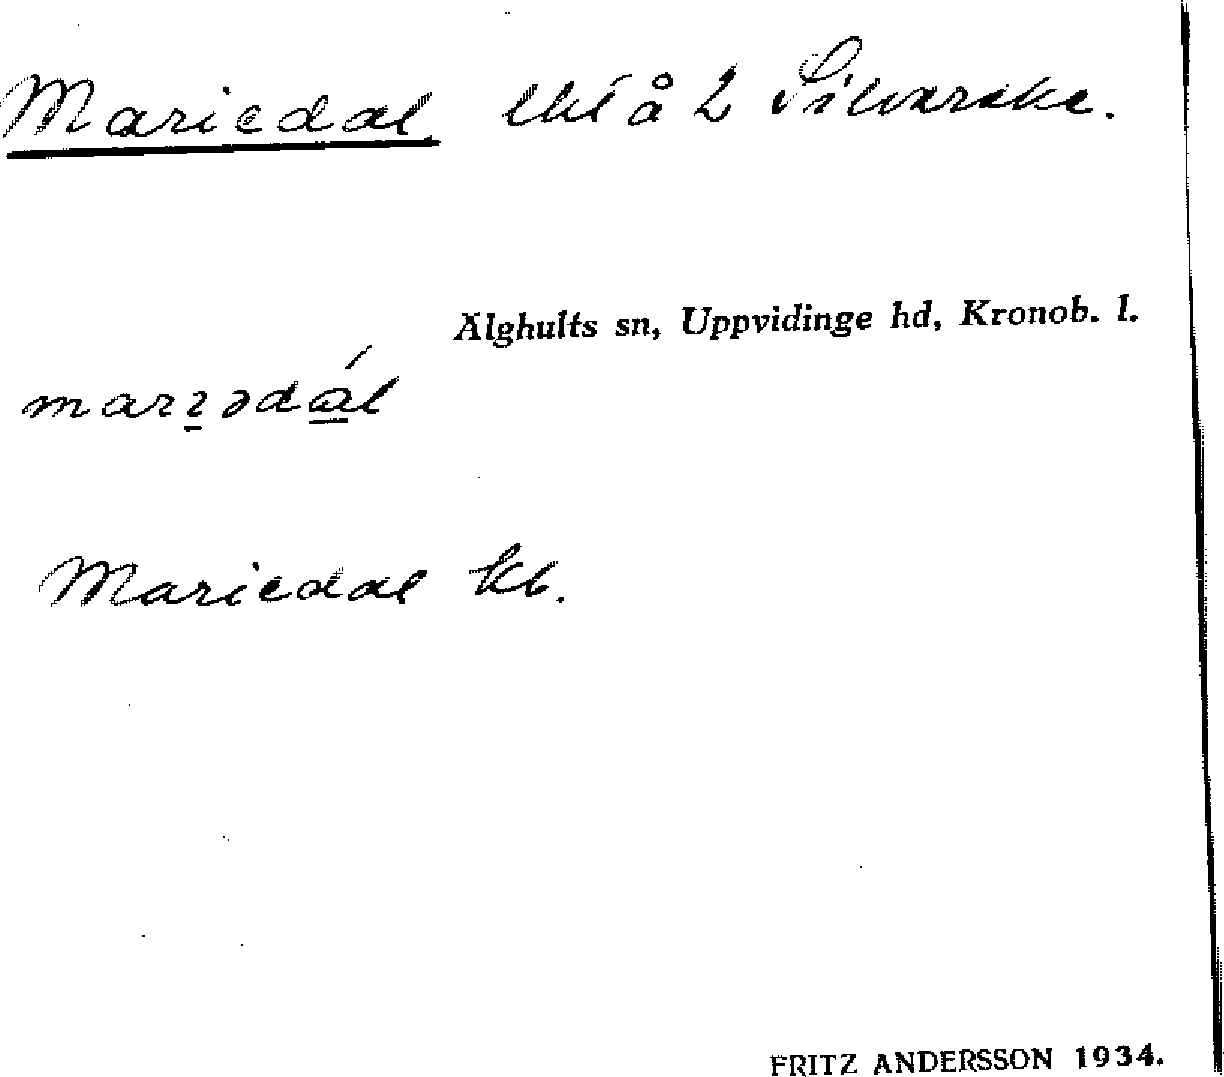 Mariedal lht å 2 Silvarske.
Älghults sn, Uppvidinge hd, Kronob. l.
marɩ̱ədá̱l
Mariedal kb.
FRITZ ANDERSSON 1934.